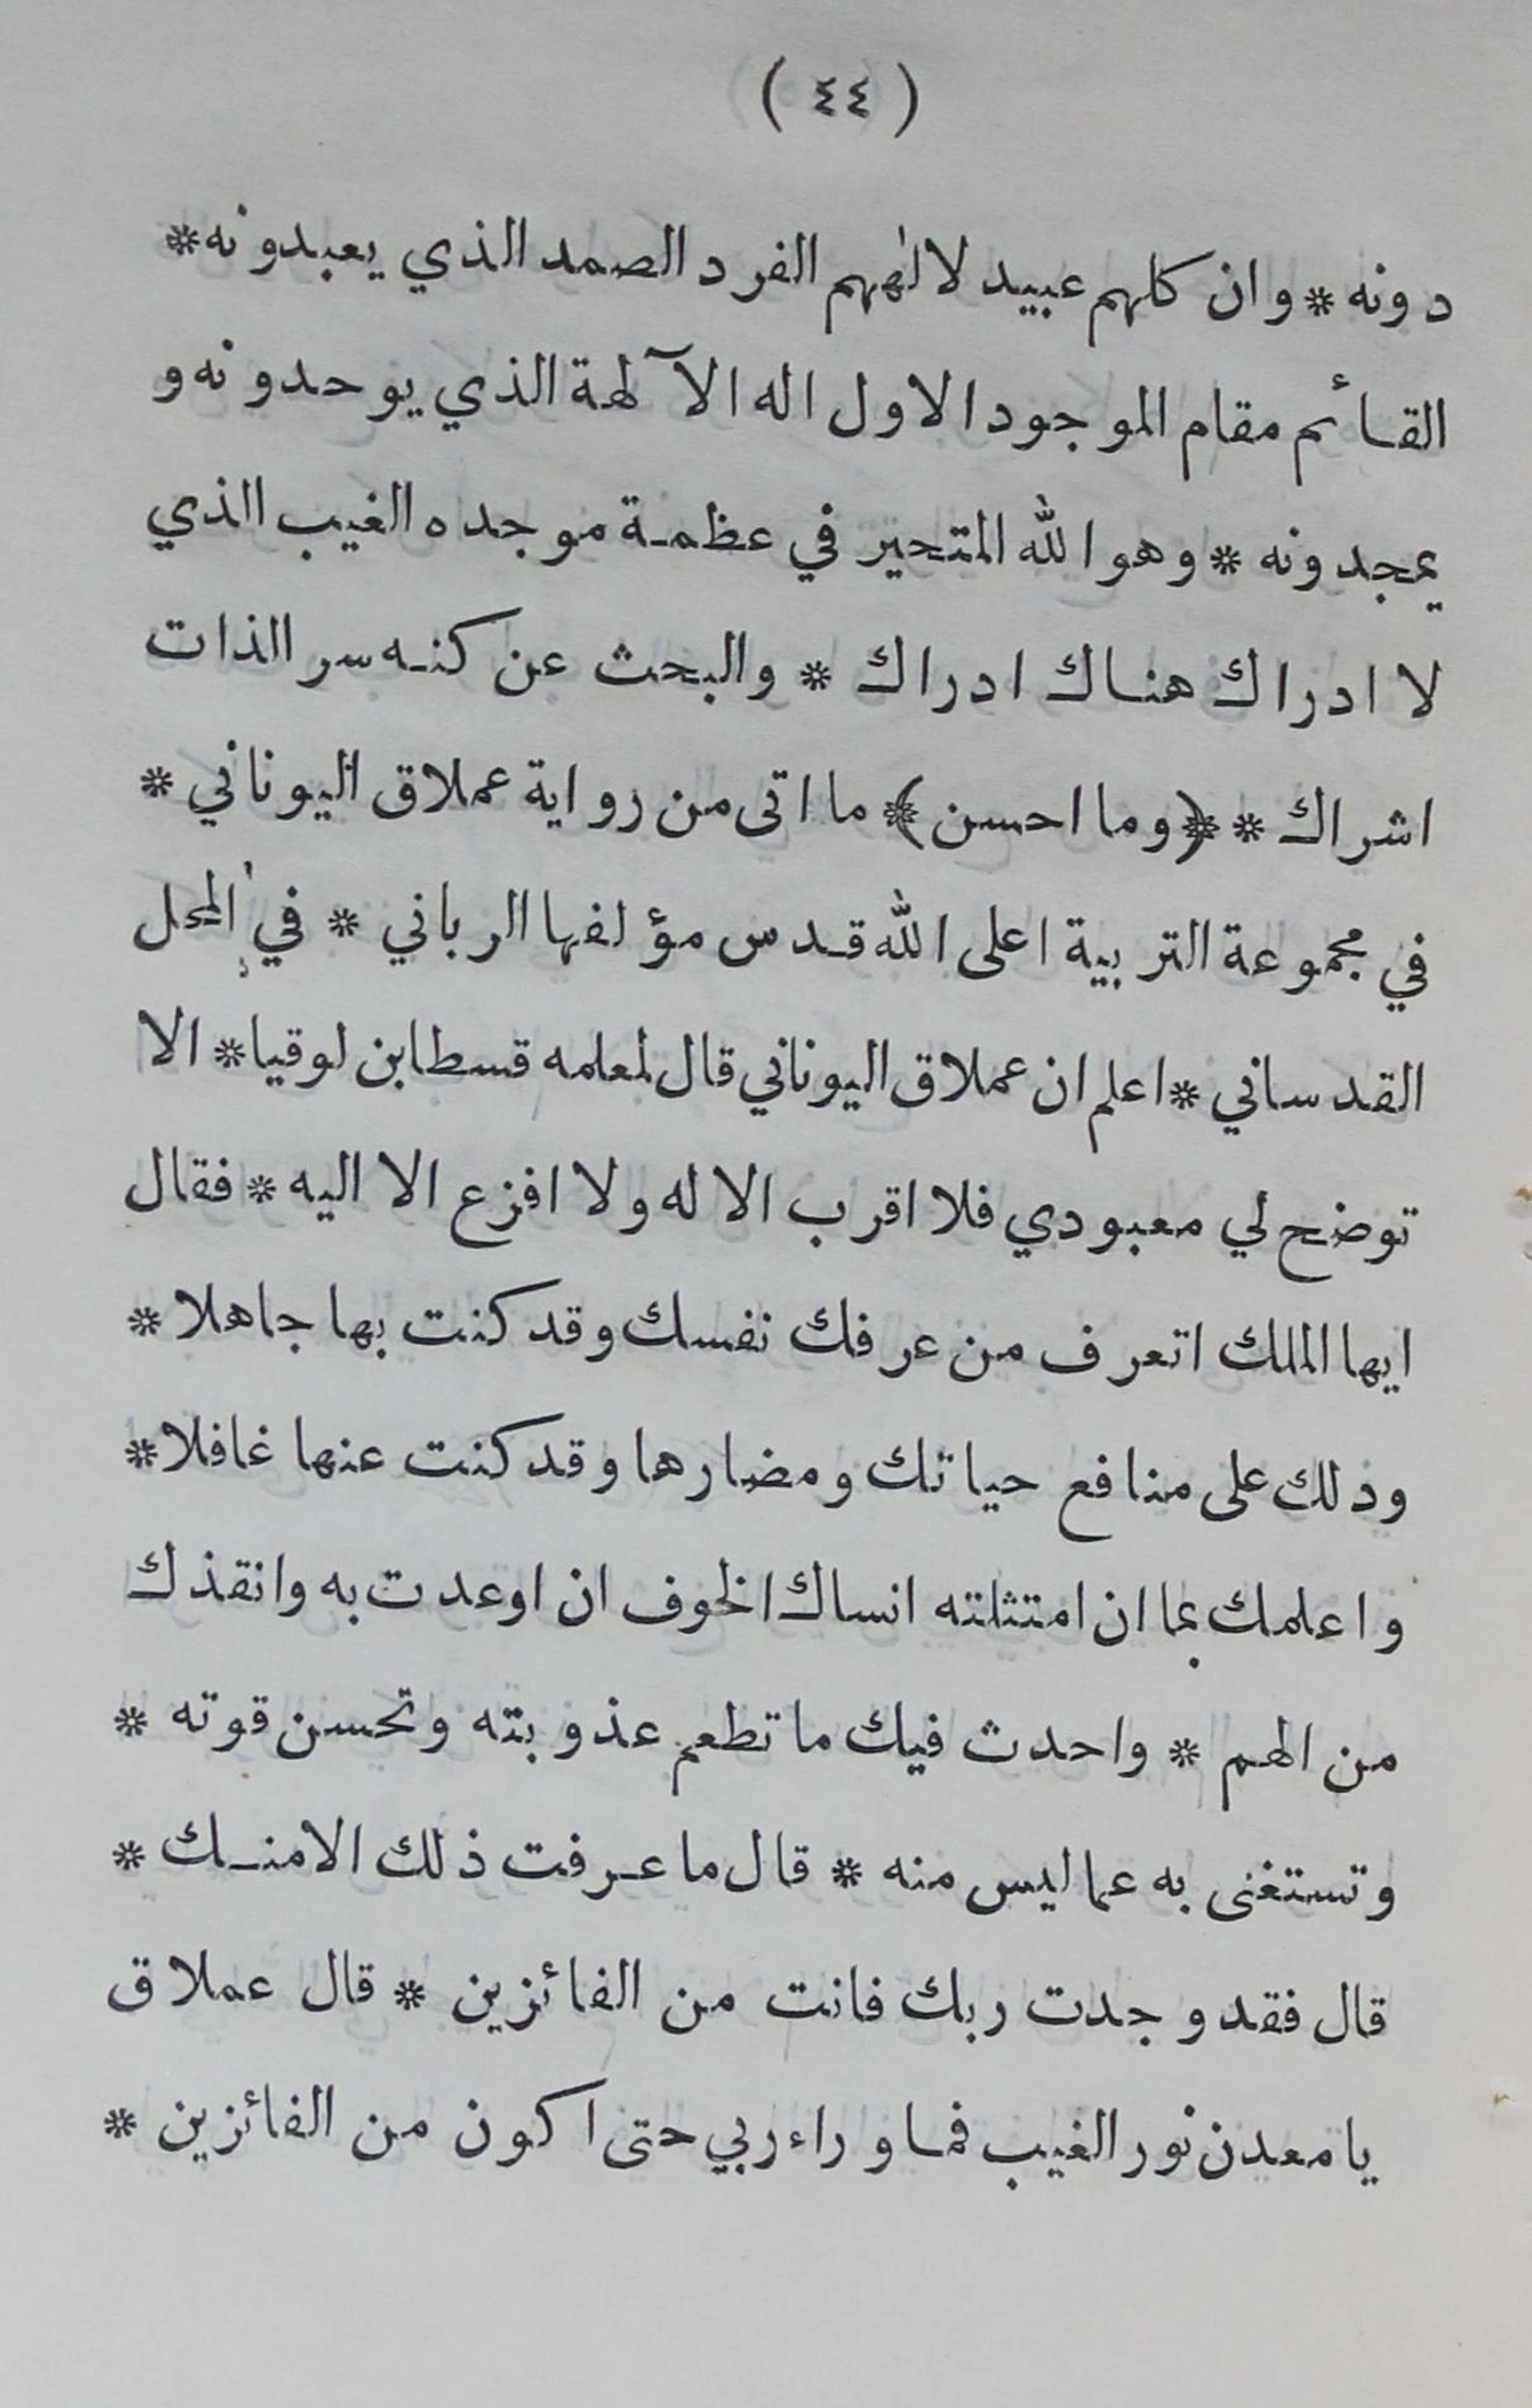 ( ٤٤ )
دونه * وان كلهم عبيد لالٰههم الفرد الصمد الذي يعبدونه *
القائم مقام الموجود الاول اله الآلهة الذي يوحدونه و
يمجدونه * وهو الله المتحير في عظمة موجده الغيب الذي
لا ادراك هناك ادراك * والبحث عن كنه سر الذات
اشراك * ﴿وما احسن﴾ ما اتى من رواية عملاق اليوناني *
في مجموعة التربية اعلى الله قدس مؤلفها الرباني * في المحل
القدساني * اعلم ان عملاق اليوناني قال لمعلمه قسطا بن لوقيا * الا
توضح لي معبودي فلا اقرب الا له ولا افزع الا اليه * فقال
ايها الملك اتعرف من عرفك نفسك وقد كنت بها جاهلا *
ودلك على منافع حياتك ومضارها وقد كنت عنها غافلا *
واعلمك بما ان امتثلته انساك الخوف ان اوعدت به وانقذك
من الهم * واحدث فيك ما تطعم عذوبته وتحسن قوته *
وتستغنى به عما ليس منه * قال ما عرفت ذلك الا منك *
قال فقد وجدت ربك فانت من الفائزين * قال عملاق
يا معدن نور الغيب فما وراء ربي حتى اكون من الفائزين *